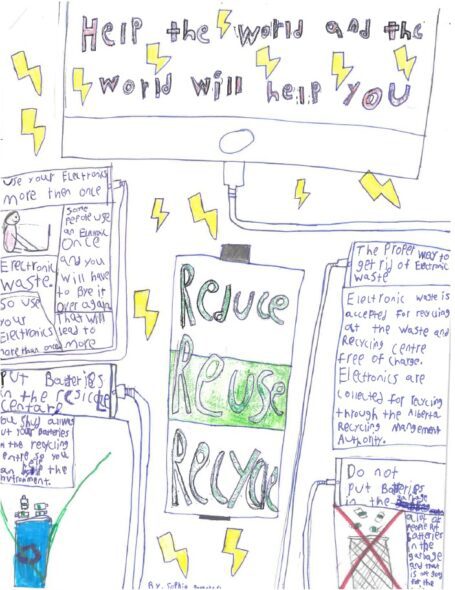 Help the world and the
world will help you
use your Electronics
more then once
some
people use
an Electronic
Once
and you
will have
to Bye it
over again
That will
lead to
more
Electronic
Waste.
so use
your
Electronics
more than once
Put Batteries
in the
you should always
put your batteries
in the recycling
centre so you
can help the
environment.
Reduce
Reuse
Recycle
The Proper way to
get rid of Electronic
waste
Electronic waste is
accepted for recycling
at the Waste and
Recycling Centre
free of charge.
Electronics are
collected for recycling
through the Alberta
Recycling Management
Authority.
Do not
put Batteries
in the
a lot of
people put
batteries
in the
garbage
and that
is not good
for the
By: Sophia